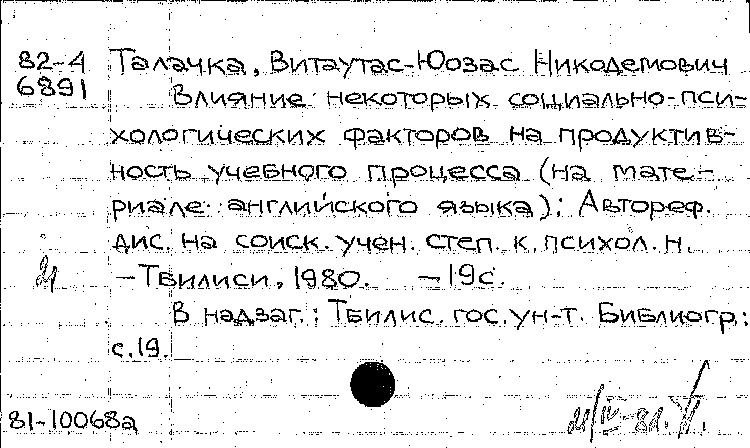 82-4 Талачка, Витаутас-Юозас Никодемович
6891 Влияние некоторых социально-пси-
хологических факторов на продуктив-
ность учебного процесса (на мате-
риале английского языка): Автореф.
дис. на соиск. учен. степ. к. психол. н.
—Тбилиси, 1980. —19с.
В надзаг.: Тбилис. гос. ун-т. Библиогр.:
с.19.
81-10068а